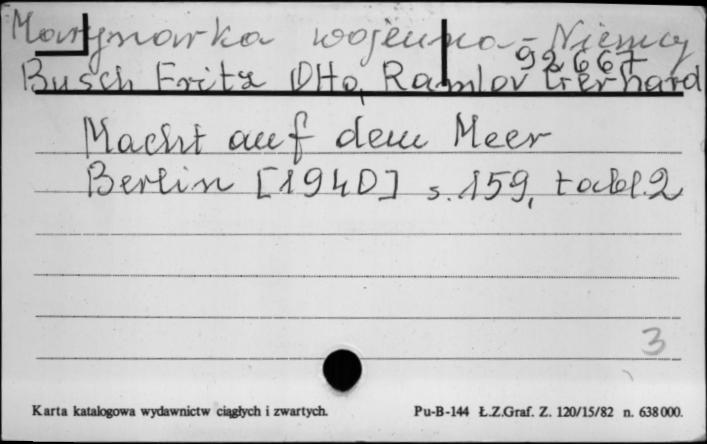 Marynarka wojenna - Niemcy
92667
Busch Fritz Otto, Ramlov Gerhard
Macht auf dem Meer
Berlin [1940] s. 159, tabl. 2
3
Karta katalogowa wydawnictw ciągłych i zwartych.
Pu-B-144 Ł.Z.Graf. Z. 120/15/82 n. 638000.